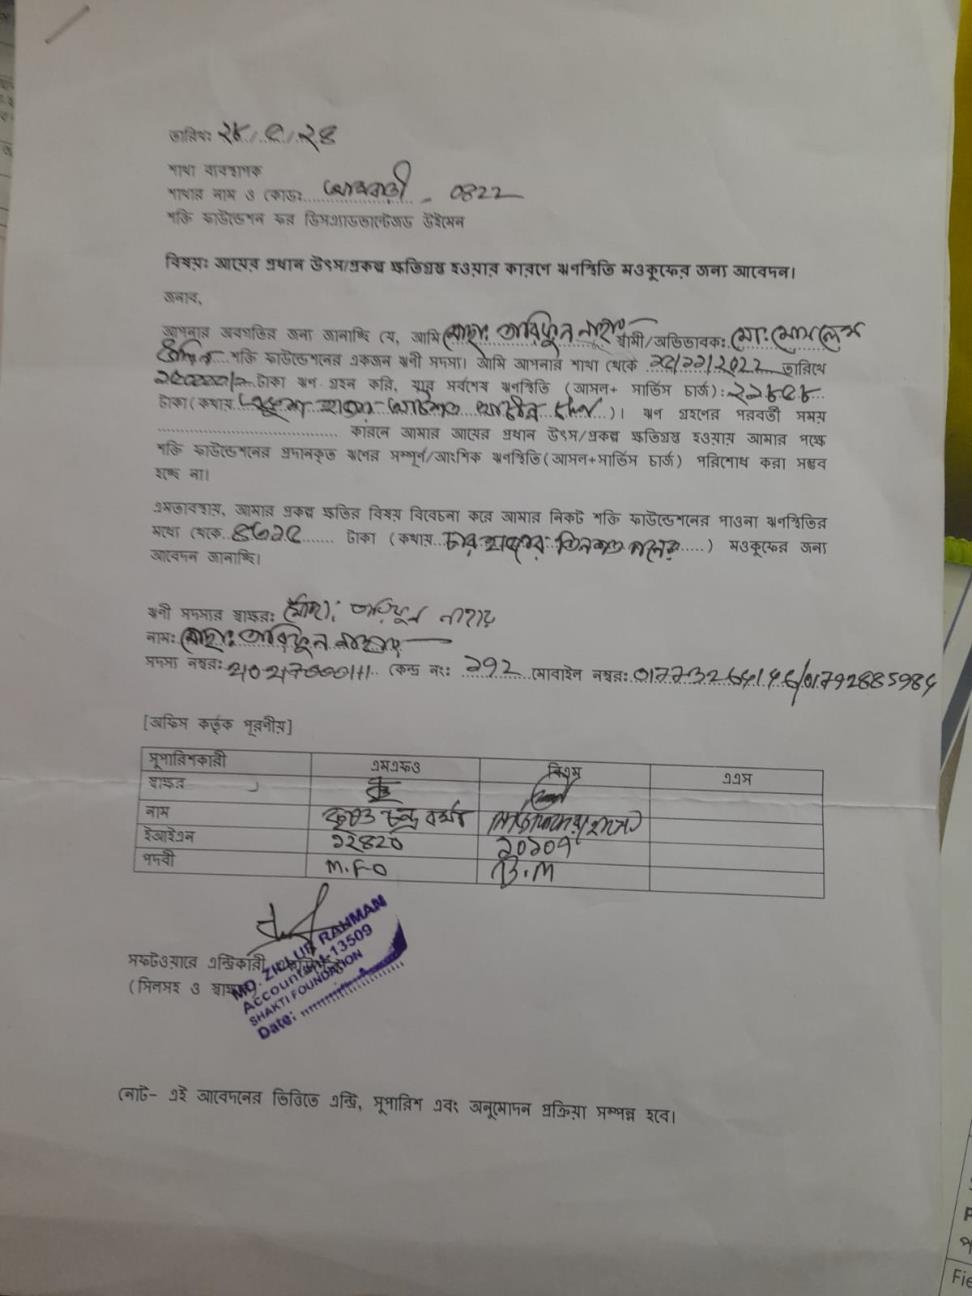 তারিখঃ ২৮/৫/২৪
শাখা ব্যবস্থাপক
শাখার নাম ও কোডঃ 0822
শক্তি ফাউন্ডেশন ফর ডিসএ্যাডভান্টেজড উইমেন
বিষয়ঃ আয়ের প্রধান উৎস/প্রকল্প ক্ষতিগ্রস্থ হওয়ার কারণে ঋণস্থিতি মওকুফের জন্য আবেদন।
জনাব,
আপনার অবগতির জন্য জানাচ্ছি যে, আমি মোছাঃ আরিফুন নাহার স্বামী/অভিভাবক: মো: মোসলেম
উদ্দিন শক্তি ফাউন্ডেশনের একজন ঋণী সদস্য। আমি আপনার শাখা থেকে ২২/১১/২০২২ তারিখে
টাকা ঋণ গ্রহন করি, যার সর্বশেষ ঋণস্থিতি (আসল+ সার্ভিস চার্জ):
টাকা (কথায় হাজার )। ঋণ গ্রহণের পরবর্তী সময়
কারনে আমার আয়ের প্রধান উৎস/প্রকল্প ক্ষতিগ্রস্থ হওয়ায় আমার পক্ষে
শক্তি ফাউন্ডেশনের প্রদানকৃত ঋণের সম্পূর্ণ/আংশিক ঋণস্থিতি(আসল+সার্ভিস চার্জ) পরিশোধ করা সম্ভব
হচ্ছে না।
এমতাবস্থায়, আমার প্রকল্প ক্ষতির বিষয় বিবেচনা করে আমার নিকট শক্তি ফাউন্ডেশনের পাওনা ঋণস্থিতির
মধ্যে থেকে ৪৩১৫ টাকা (কথায় চার হাজার তিনশত পনের ) মওকুফের জন্য
আবেদন জানাচ্ছি।
ঋণী সদস্যের স্বাক্ষরঃ মোছা: আরিফুন নাহার
নামঃ মোছাঃ আরিফুন নাহার
সদস্য নম্বরঃ কেন্দ্র নং: ১৭২ মোবাইল নম্বরঃ /01792885984
[অফিস কর্তৃক পূরণীয়]
সুপারিশকারী এমএফও বিএম এএস
স্বাক্ষর
নাম চন্দ্র বর্মন
ইআইএন ১২৪২০ ২০২০৭
পদবী M.F.O B.M
সফটওয়্যারে এন্ট্রিকারী
(সিলসহ ও স্বাক্ষর
MD. ZILLUR RAHMAN
Accountant-13509
SHAKTI FOUNDATION
Date:
নোট- এই আবেদনের ভিত্তিতে এন্ট্রি, সুপারিশ এবং অনুমোদন প্রক্রিয়া সম্পন্ন হবে।